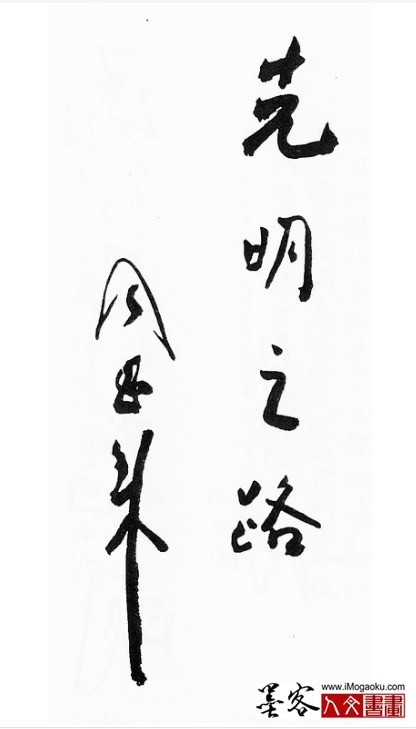 光明之路
周恩来
墨客
www.iMogaoku.com
人文書畫